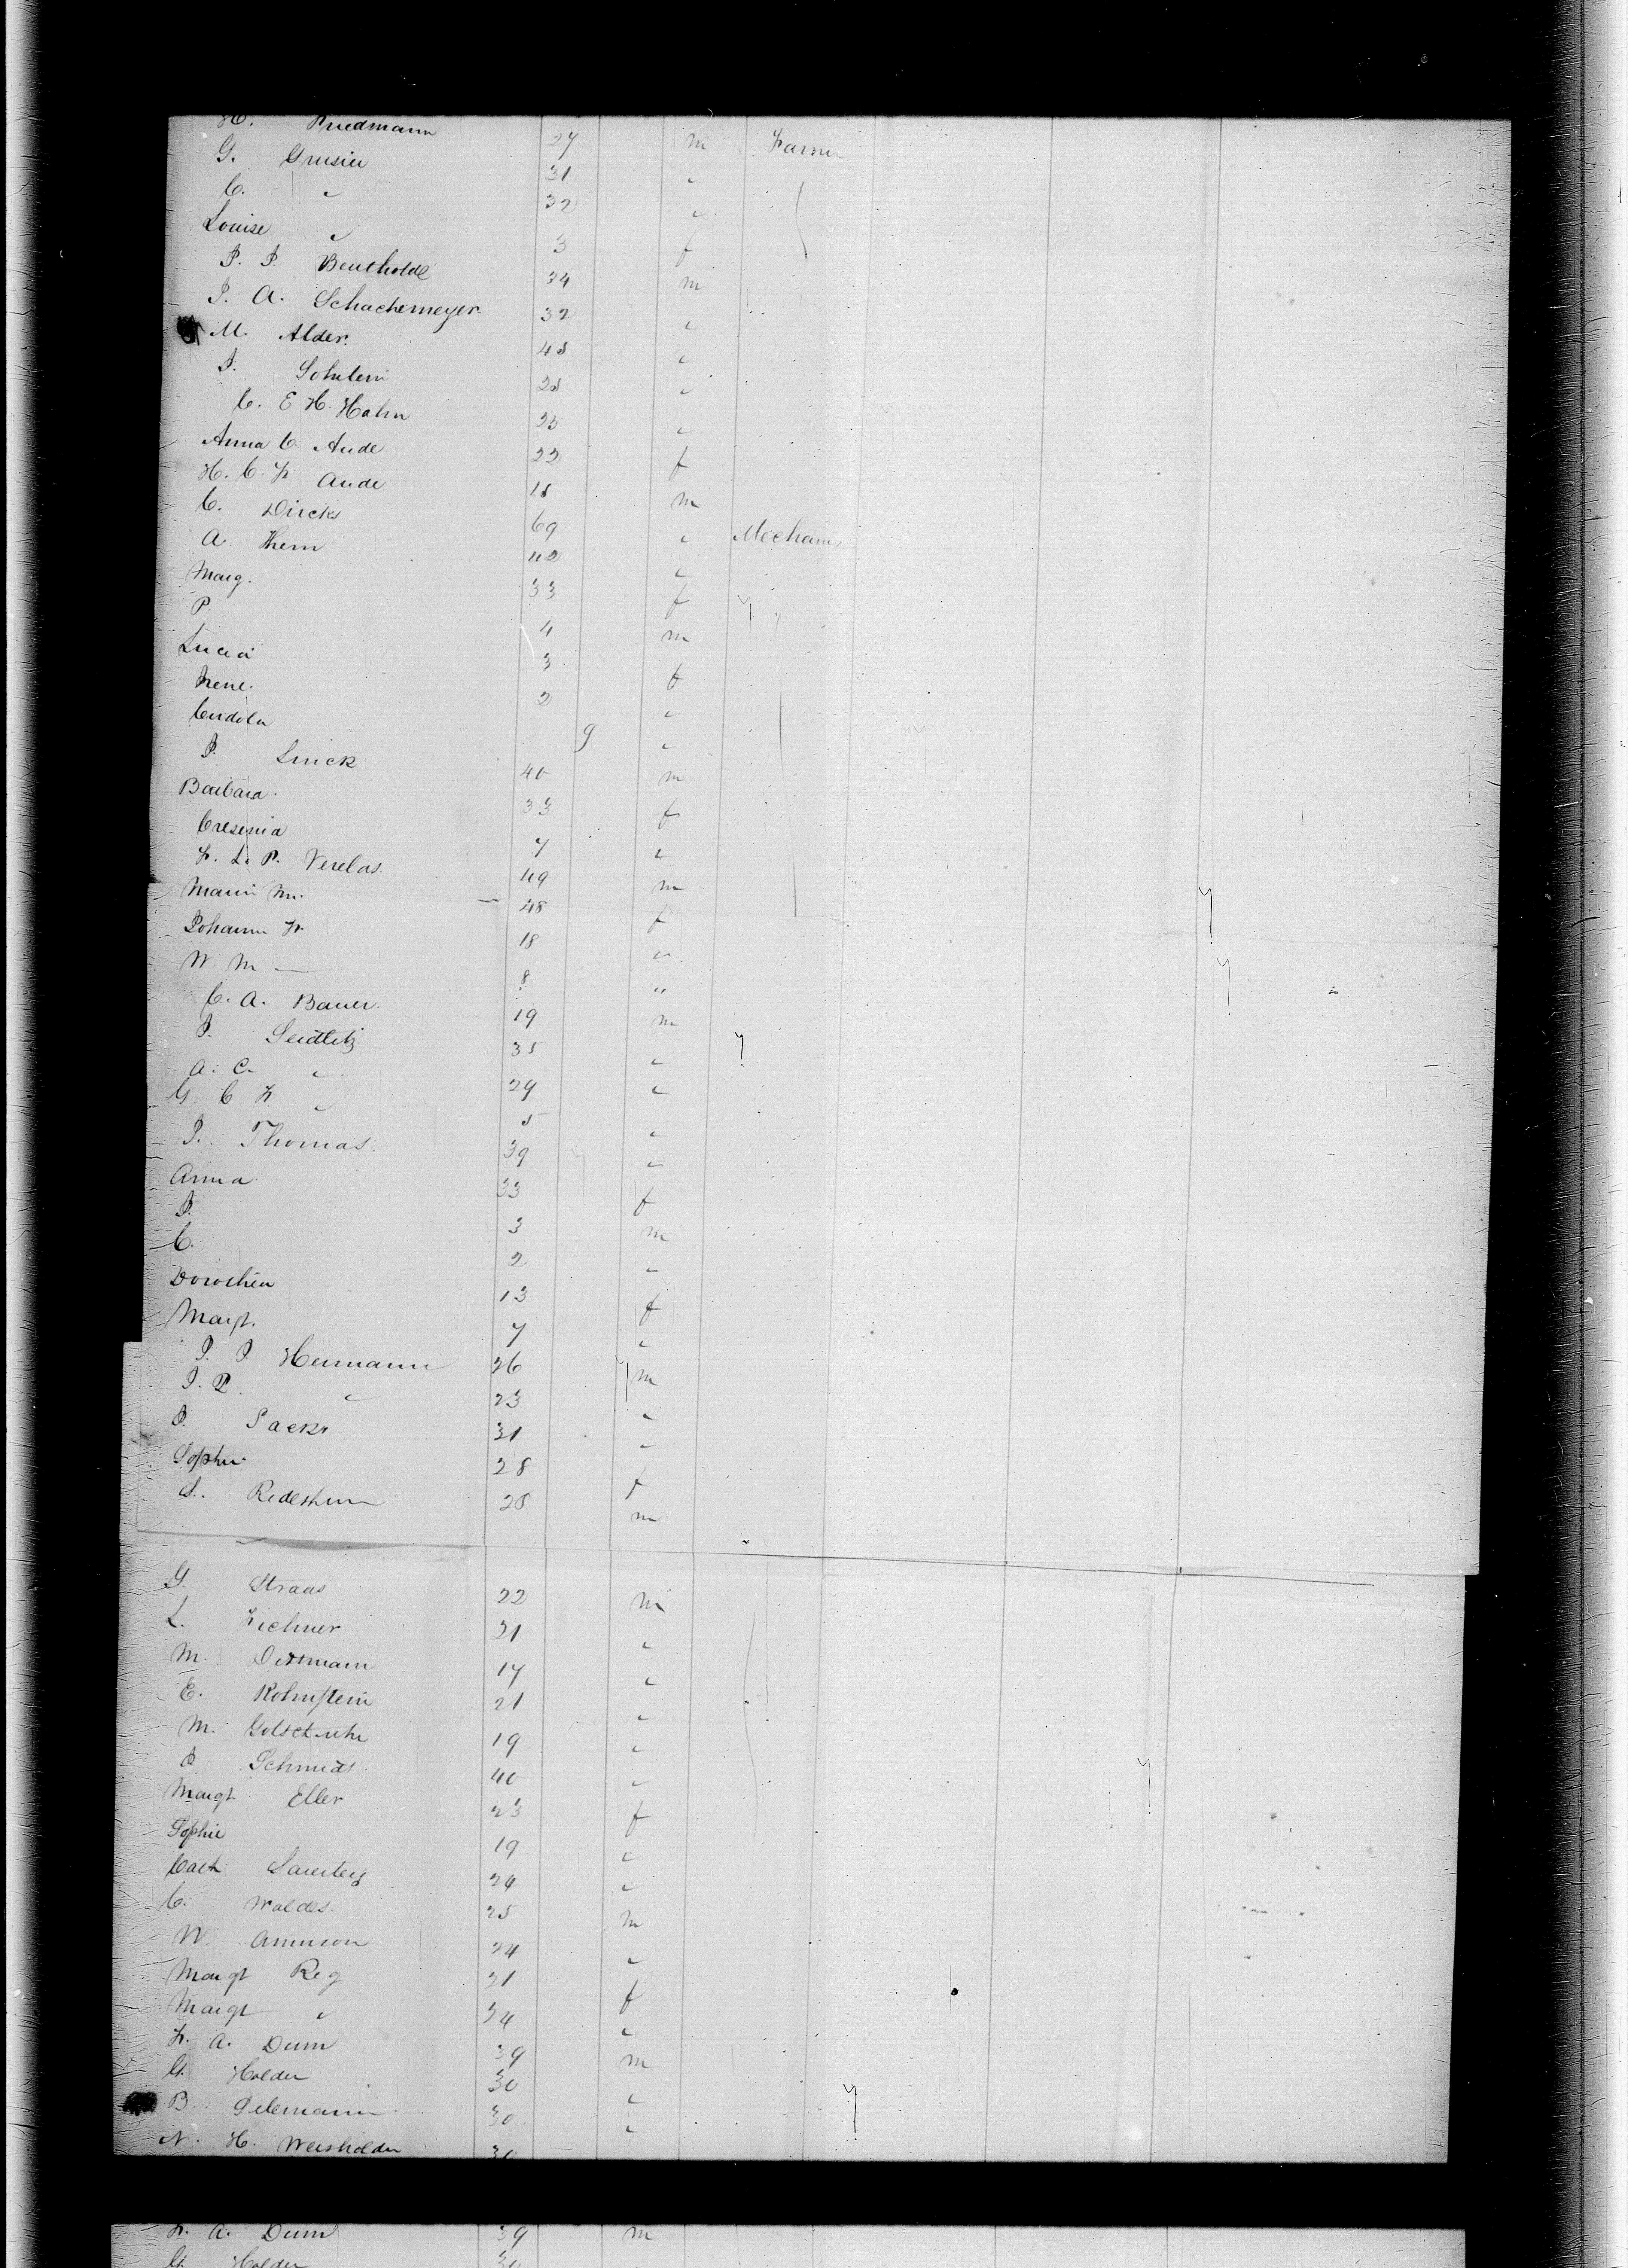 H. Priedmann 27 m Farmer
G. Grusier 31 "
C. " 32 "
Louise " 3 f
J. J. Bentholde 34 m
J. A. Schachemeyer 32 "
M. Alder. 45 "
J. 25 "
C. E H. Hahn 25 "
Anna C. Aude 22 f
H. C. F. Aude 18 m
C. Dircks 69 " Mechanic
A. Khern 42 "
Marg. 33 f
P. 4 m
Lucia 3 f
Irene. 2 "
9 "
J. Linick 40 m
Barbara. 33 f
Cresenia 7 "
F. L. P. Verelas. 49 m
Marii M. 48 f
Johanna Fr. 18 "
W M — 8 "
C. A. Bauer. 19 m
J. Seidlitz 35 "
A. C. " 29 "
G C F " 5 "
J. Thomas. 39 "
Anna 33 f
J. 3 m
C. 2 "
Dorothea 13 f
Margt. 7 "
J. J. Hermann 26 m
J. P. " 23 "
J. Sacks 31 "
Sophie 28 f
S. 28 m
G. Straas 22 m
L. Fichner 21 "
M. Dittmann 17 "
E. Rohnstein 21 "
M. 19 "
J. Schmidt. 40 "
Margt Eller 23 f
Sophie 19 "
Cath 24 "
C. Waldes. 25 m
W. 24 "
Margt Reg 21 f
Margt " 24 "
F. A. Dum 39 m
G. Holder 30 "
B. 30 "
N. H. Weisholder 30
F. A. Dum 39 m
G. Holder 30